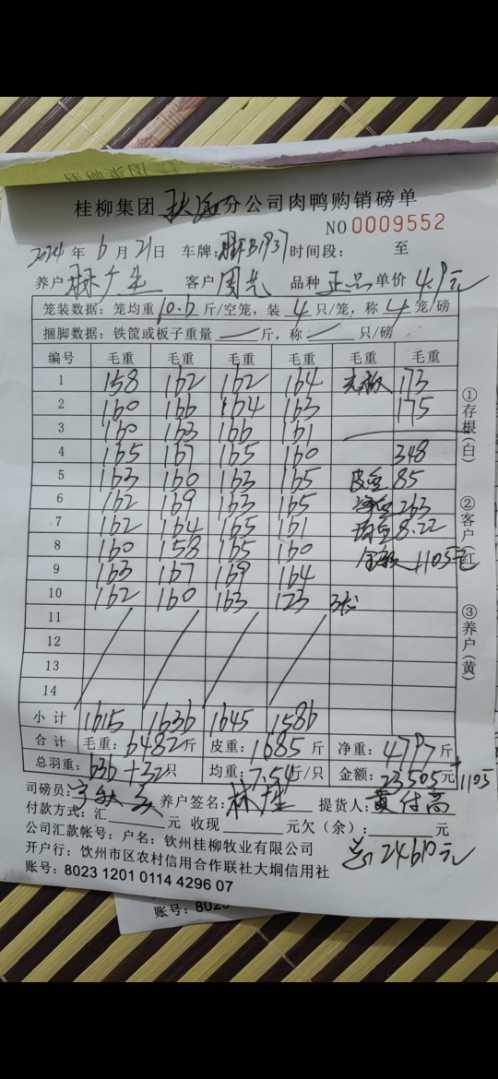 桂柳集团 分公司肉鸭购销磅单
NO 0009552
2024年6月21日 车牌： 时间段： 至
养户 林广生 客户 周先 品种 正品 单价 4.9元
笼装数据：笼均重10.6斤/空笼，装4只/笼，称4笼/磅
捆脚数据：铁筐或板子重量 斤，称 只/磅
编号 毛重 毛重 毛重 毛重 毛重 毛重
1 158 162 162 164 173
2 160 166 164 163 175
3 160 163 166 161
4 165 167 165 160 348
5 163 160 163 165 皮重 85
6 162 169 163 165 净重 263
7 162 164 165 161 均重 8.22
8 160 158 165 160 金额 1105元
9 163 167 169 164
10 162 160 163 123 3笼
11
12
13
14
小计 1615 1636 1645 1586
合计 毛重：6482斤 皮重：1685斤 净重：4797斤
总羽重：636+32只 均重：7.54斤/只 金额：23505元+1105
司磅员： 养户签名：林广生 提货人：黄付高
付款方式：汇 元 收现 元欠（余）： 元
总24610元
公司汇款帐号：户名：钦州桂柳牧业有限公司
开户行：钦州市区农村信用合作联社大垌信用社
账号：8023 1201 0114 4296 07
①存根（白）
②客户（红）
③养户（黄）
账号：802